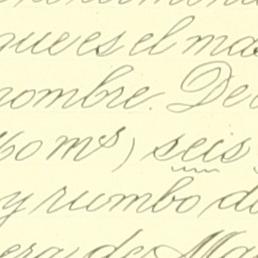 que es el mas
nombre. De
60 ms) seis
y rumbo d
era de Ma